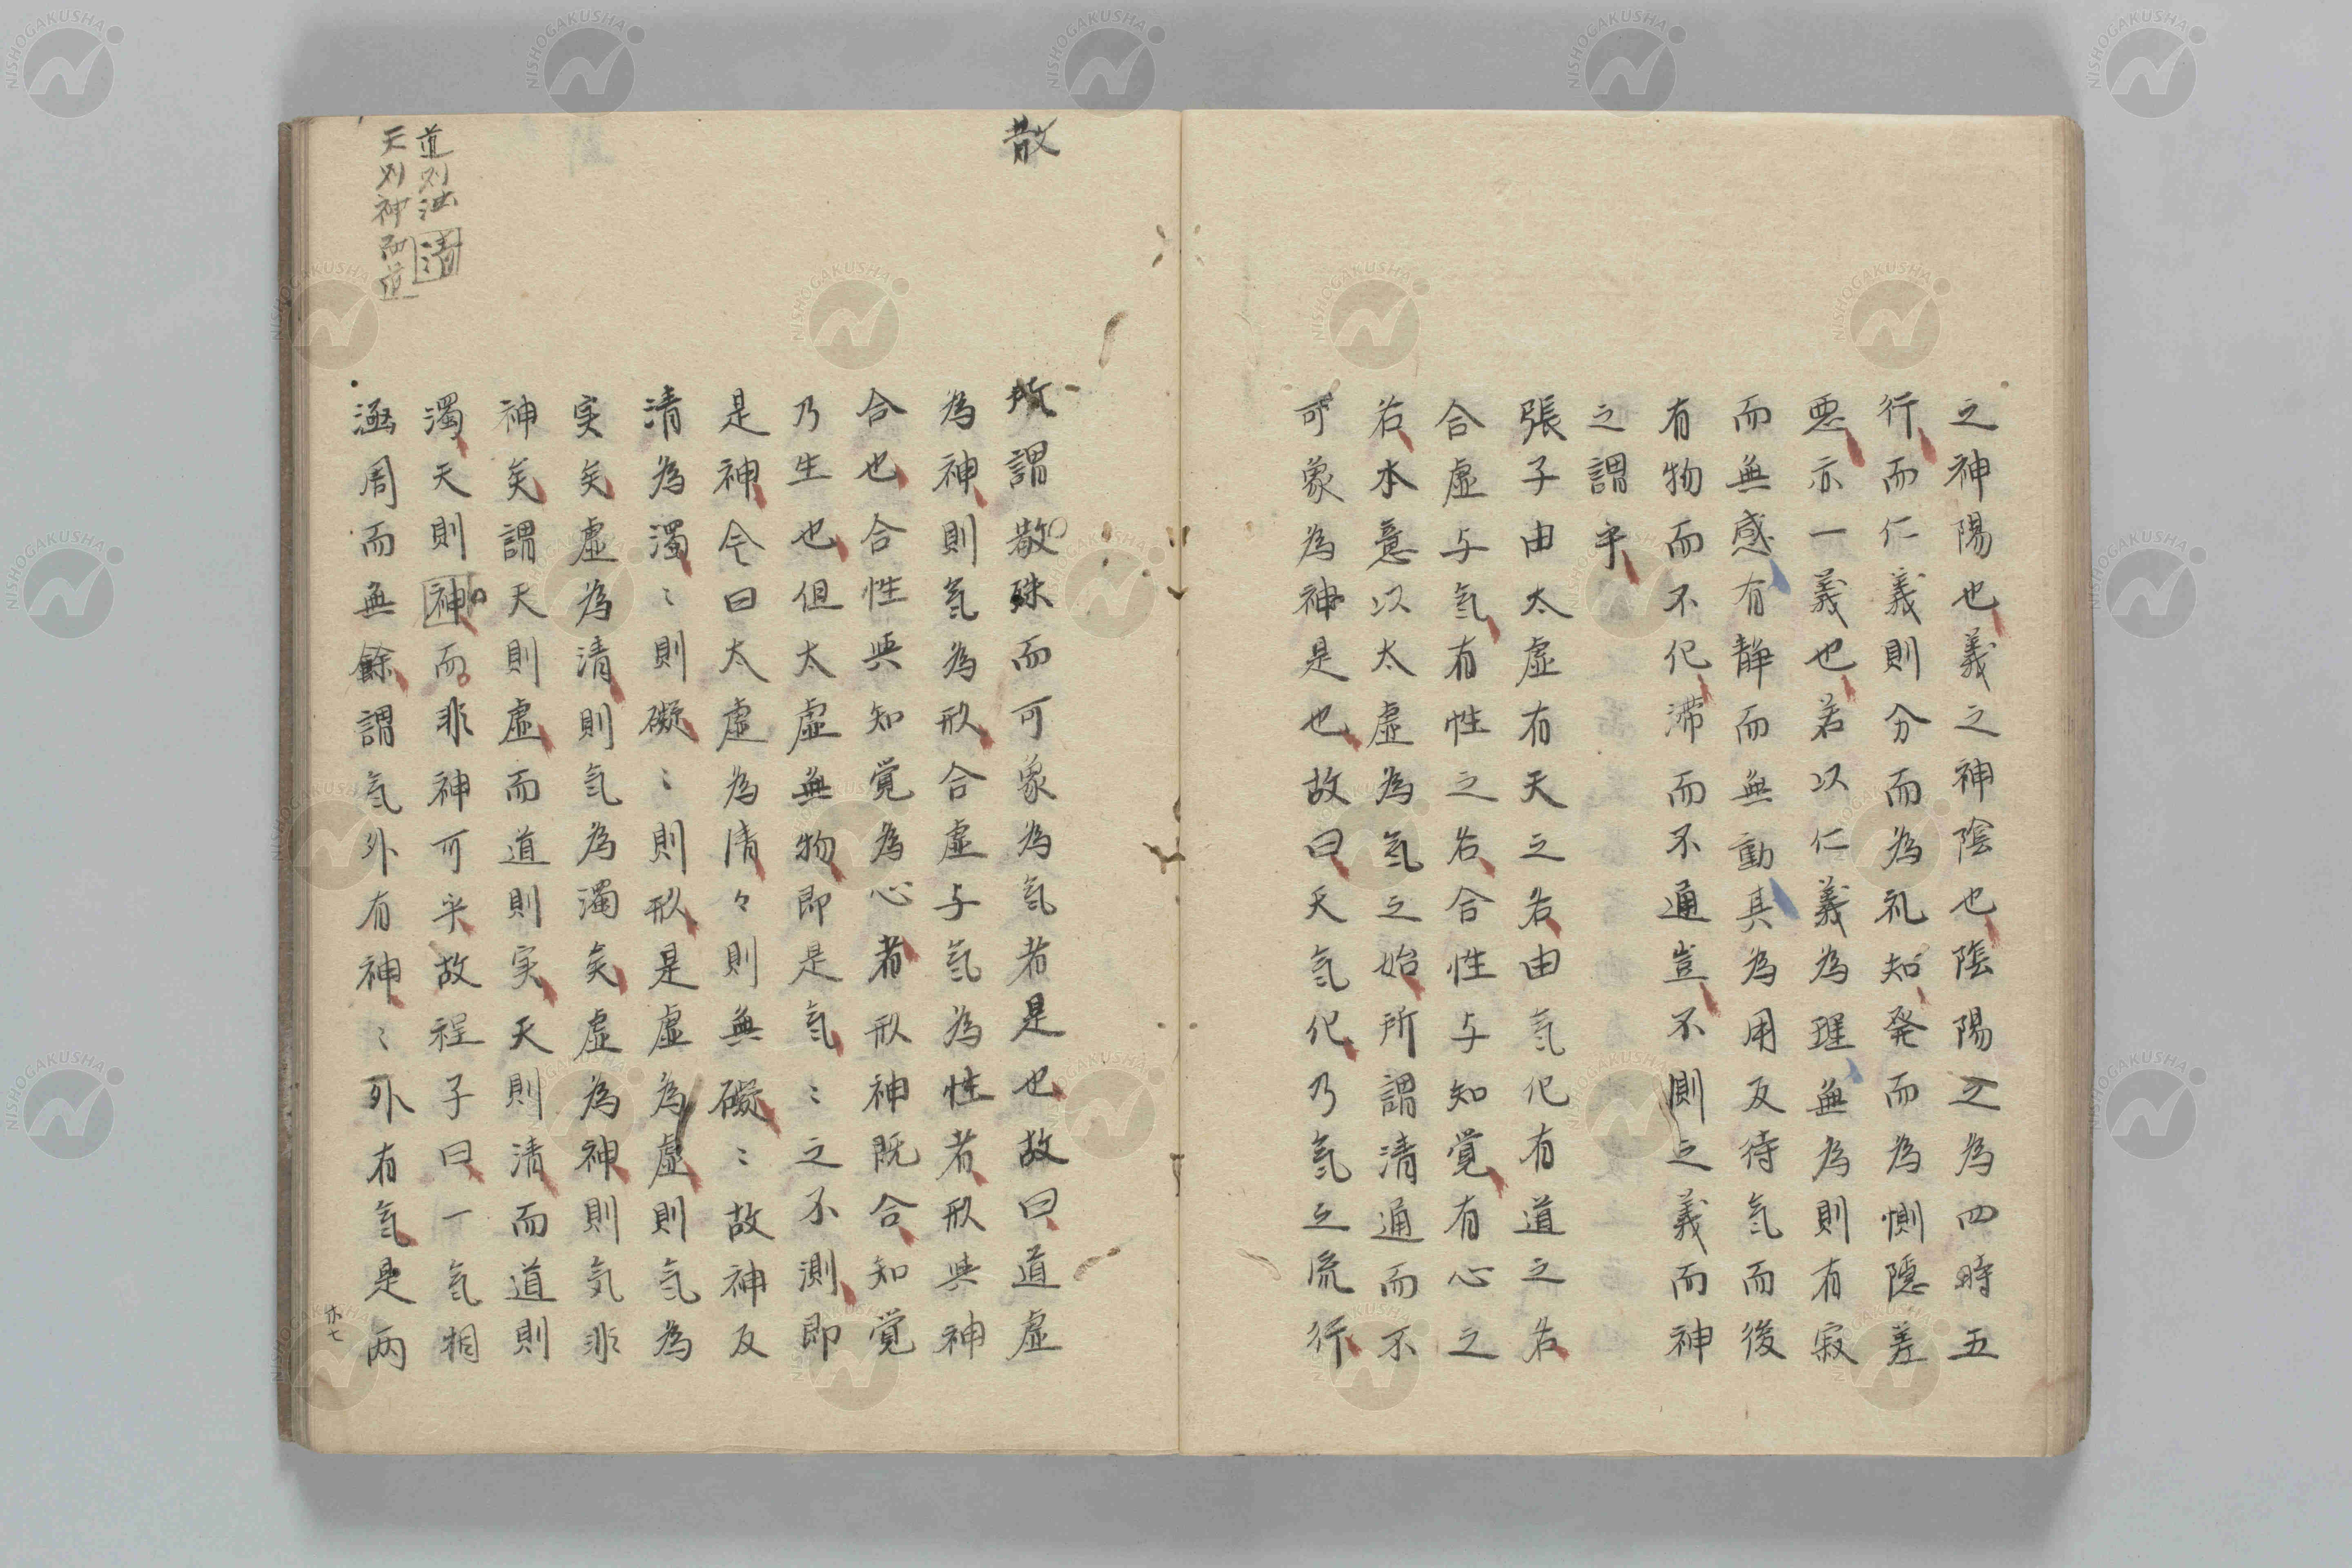 之神陽也義之神陰也陰陽之為四時五
行而仁義則分而為礼知発而為惻隠羞
悪亦一義也若以仁義為理無為則有寂
而無感有静而無動其為用反待氣而後
有物而不化滞而不通豈不測之義而神
之謂乎
張子由太虚有天之名由氣化有道之名
合虚与氣有性之名合性与知覚有心之
名本意以太虚為氣之始所謂清通而不
可象為神是也故曰天氣化乃氣之流行
散
所謂散殊而可象為氣者是也故曰道虚
為神則氣為形合虚与氣為性者形與神
合也合性與知覚為心者形神既合知覚
乃生也但太虚無物即是氣〻之不測即
是神今曰太虚為清々則無礙〻故神反
清為濁〻則礙〻則形是虚為虚則氣為
実矣虚為清則氣為濁矣虚為神則気非
神矣謂天則虚而道則実天則清而道則
濁天則神而非神可乎故程子曰一氣相
涵周而無餘謂氣外有神〻外有氣是両
道則濁清
天則神而道